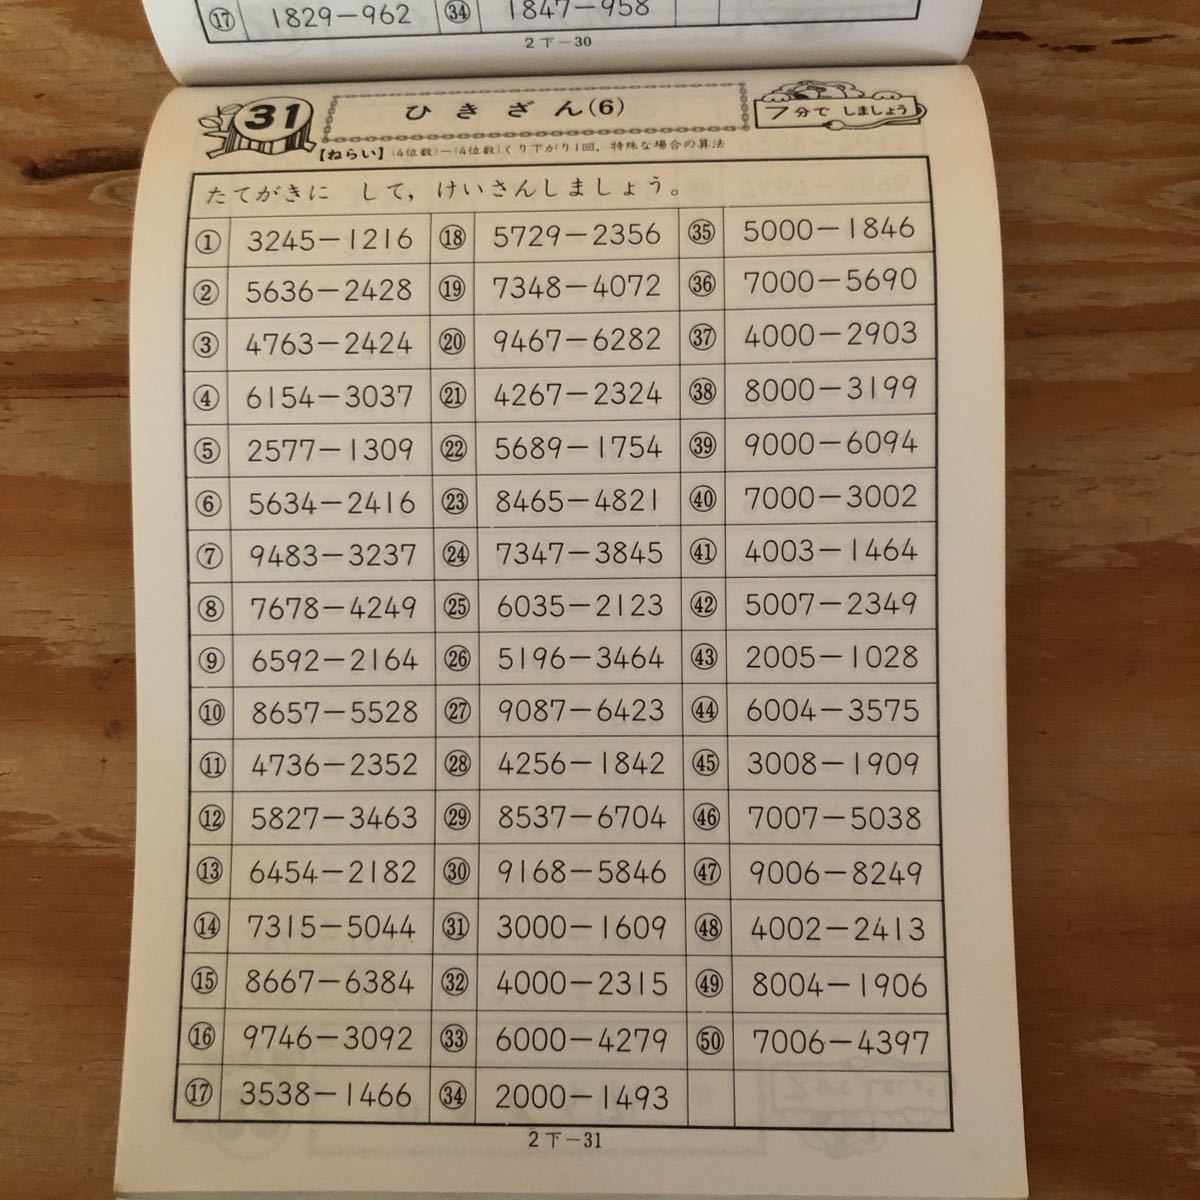 ⑰ 1829−962 ㉞ 1847−958
2下−30
31 ひきざん(6) 7分で しましょう
【ねらい】(4位数)−(4位数)くり下がり1回，特殊な場合の算法
たてがきに して，けいさんしましょう。
① 3245−1216 ⑱ 5729−2356 ㉟ 5000−1846
② 5636−2428 ⑲ 7348−4072 ㊱ 7000−5690
③ 4763−2424 ⑳ 9467−6282 ㊲ 4000−2903
④ 6154−3037 ㉑ 4267−2324 ㊳ 8000−3199
⑤ 2577−1309 ㉒ 5689−1754 ㊴ 9000−6094
⑥ 5634−2416 ㉓ 8465−4821 ㊵ 7000−3002
⑦ 9483−3237 ㉔ 7347−3845 ㊶ 4003−1464
⑧ 7678−4249 ㉕ 6035−2123 ㊷ 5007−2349
⑨ 6592−2164 ㉖ 5196−3464 ㊸ 2005−1028
⑩ 8657−5528 ㉗ 9087−6423 ㊹ 6004−3575
⑪ 4736−2352 ㉘ 4256−1842 ㊺ 3008−1909
⑫ 5827−3463 ㉙ 8537−6704 ㊻ 7007−5038
⑬ 6454−2182 ㉚ 9168−5846 ㊼ 9006−8249
⑭ 7315−5044 ㉛ 3000−1609 ㊽ 4002−2413
⑮ 8667−6384 ㉜ 4000−2315 ㊾ 8004−1906
⑯ 9746−3092 ㉝ 6000−4279 ㊿ 7006−4397
⑰ 3538−1466 ㉞ 2000−1493
2下−31